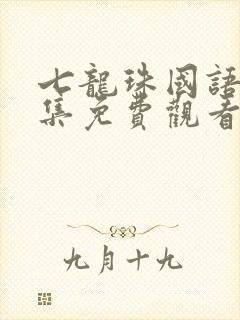 七龍珠國語
集免費觀看
九月十九